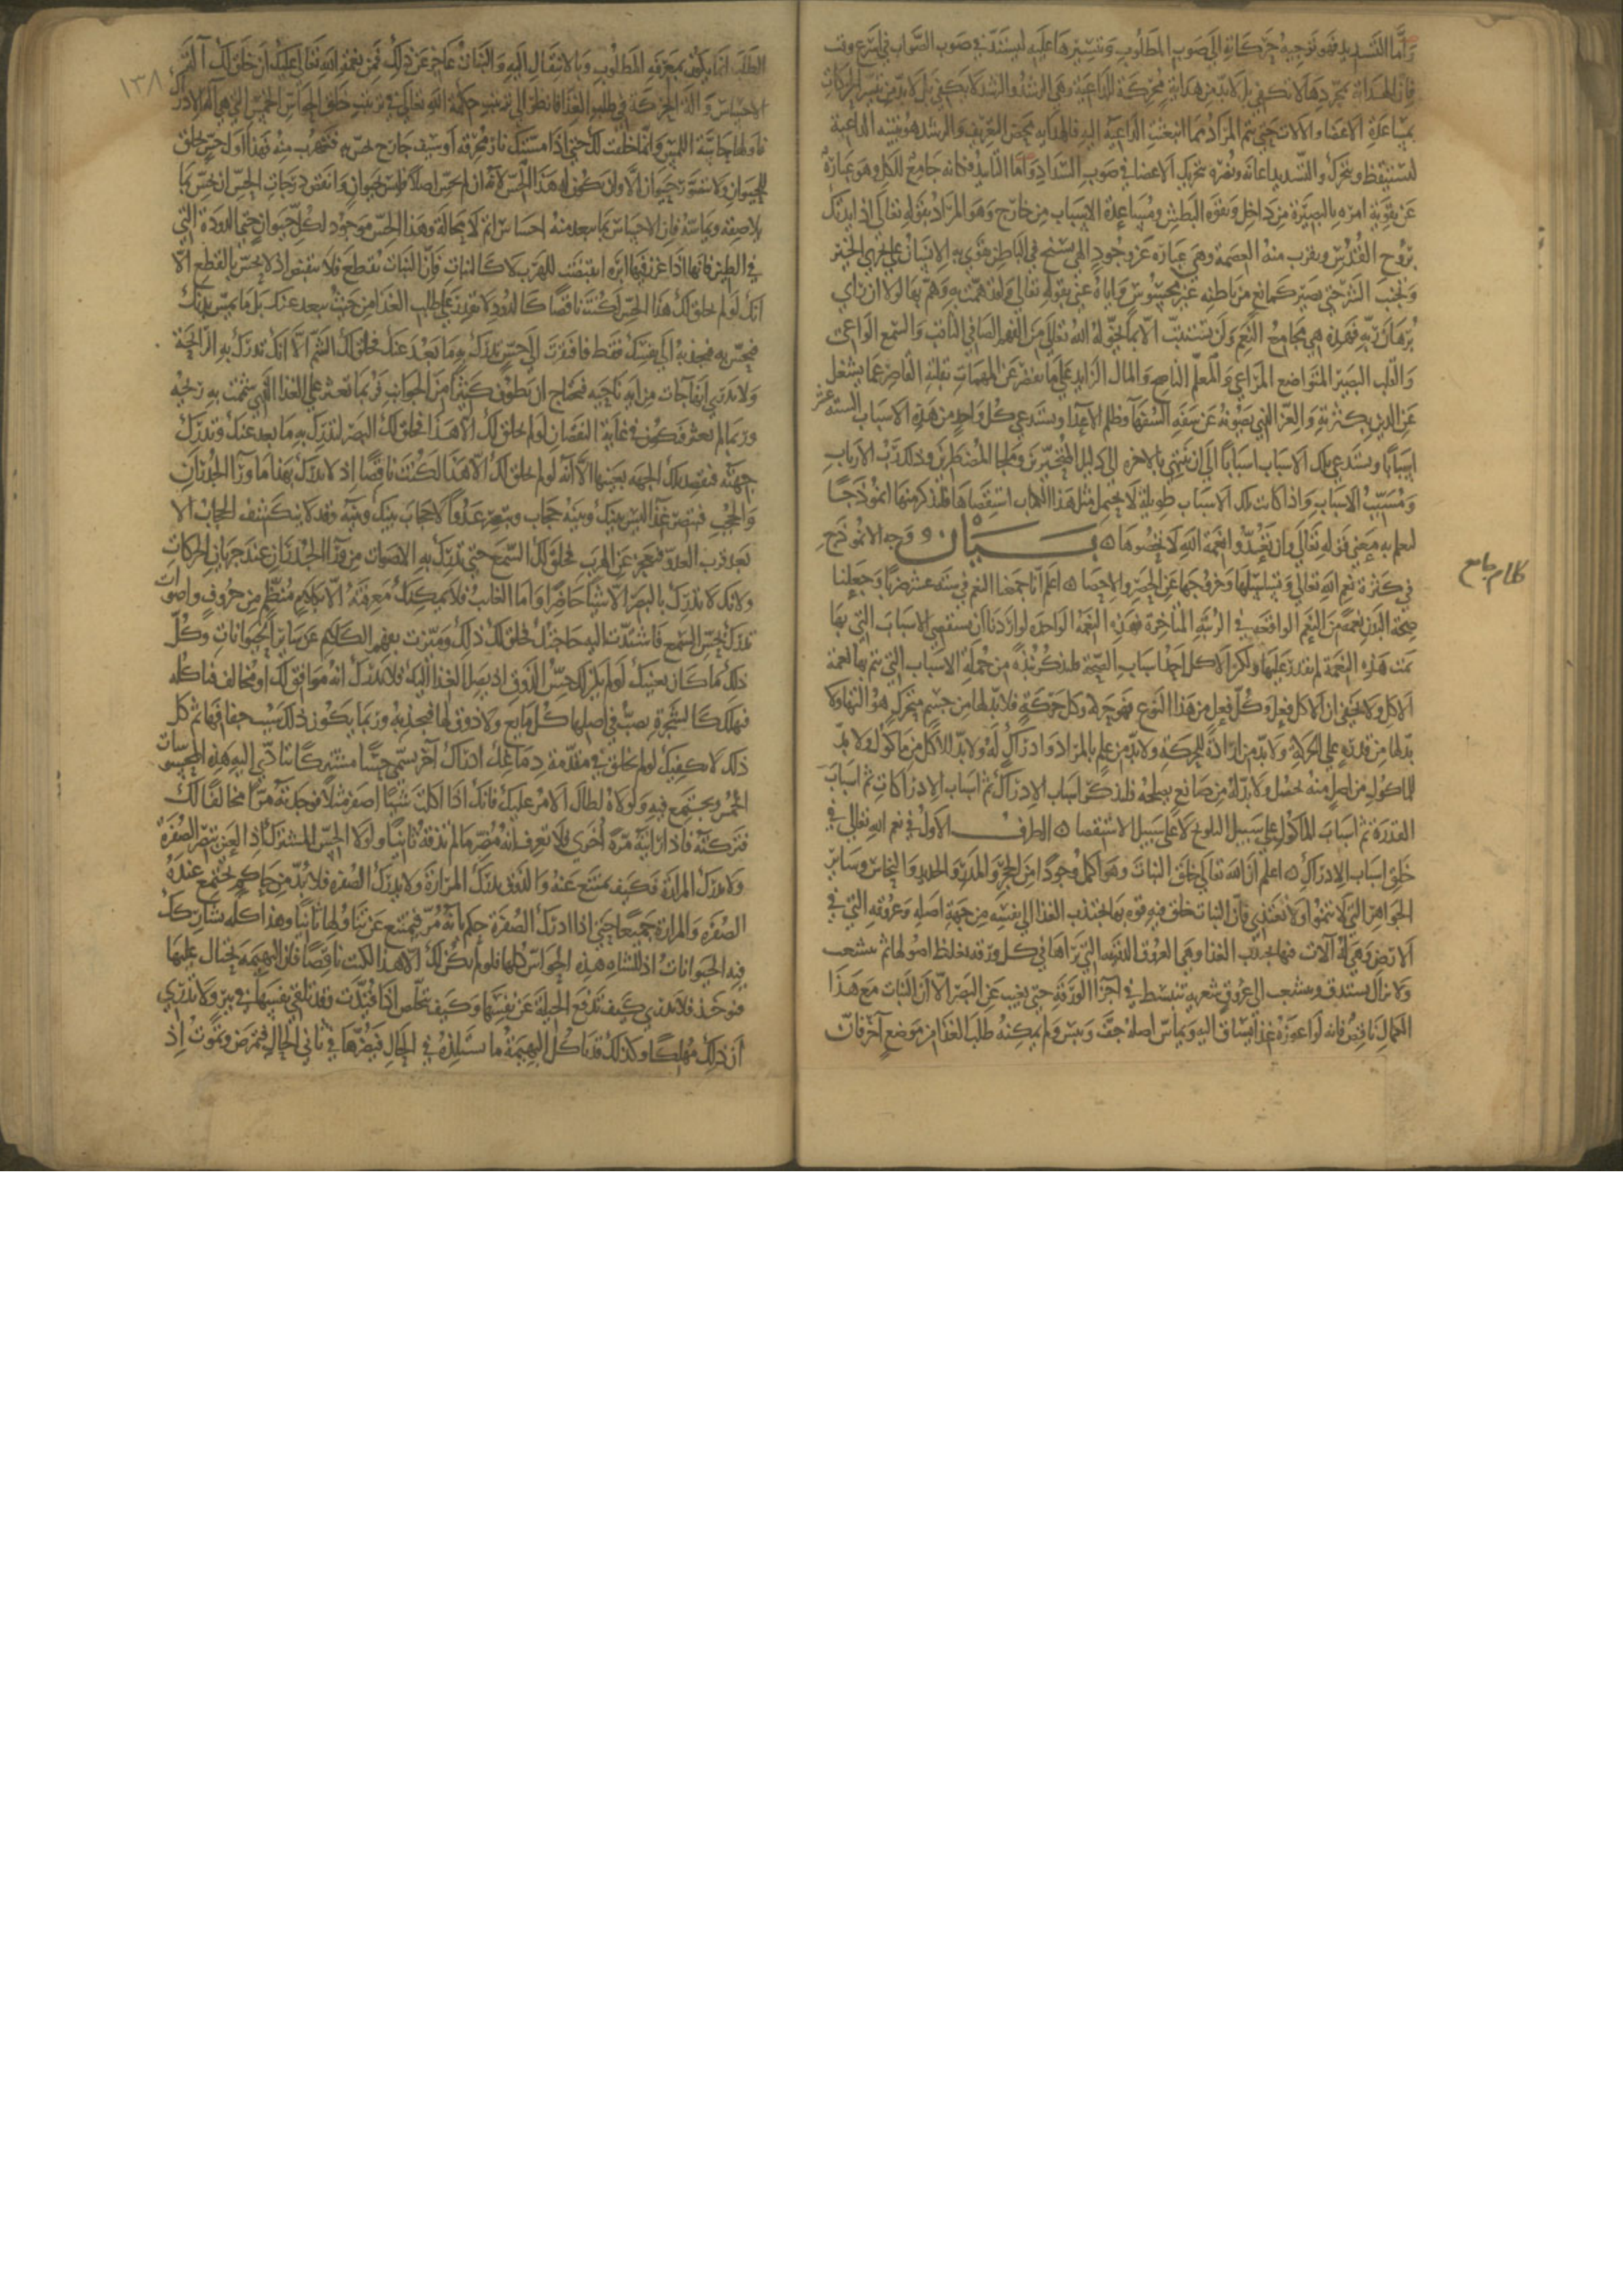 وأما التسديد فهو توجيه حركاته إلى صوب المطلوب وتيسيرها عليه ليستد في صوب الصواب في أسرع وقت
فإن الهداية بمجردها لا تكفي بل لا بد من هداية محركة للداعية وهي الرشد والرشد لا يكفي بل لا بد من تيسر الحركات
بمساعدة الاعضا والالات حتى يتم المراد مما انبعثت الداعية اليه فالهداية محض التعريف والرشد هو تنبيه الداعية
لتستيقظ وتتحرك والتسديد اعانة ونصرة بتحريك الاعضا في صوب السداد وأما التأييد فكانه جامع للكل وهو عبارة
عن تقوية امره بالبصيرة من داخل وبقوة البطش ومساعدة الاسباب من خارج وهو المراد بقوله تعالى اذ ايدتك
بروح القدس ويقرب منه العصمة وهي عبارة عن وجود الهي يسبح في الباطن يقوى به الانسان على تحري الخير
وتجنب الشر حتى يصير كمانع من باطنه غير محسوس واياه عني بقوله تعالى ولقد همت به وهم بها لولا ان راى
برهان ربه فهذه هي مجامع النعم ولن تتثبت الا بما يخوله الله تعالى من الفهم الصافي الثاقب والسمع الواعي
والقلب البصير المتواضع المراعي والمعلم الناصح والمال الزايد على ما يقصر عن المهمات بقلته القاصر عما يشغل
عن الدين بكثرته والعز الذي يصونه عن سفه السفها وظلم الاعدا ويستدعي كل واحد من هذه الاسباب الستة عشر
اسبابا وتستدعي تلك الاسباب اسبابا الى ان تنتهي بالاخرة الى دليل المتحيرين وملجا المضطرين وذلك رب الارباب
ومسبب الاسباب واذا كانت تلك الاسباب طويلة لا يحتمل مثل هذا الكتاب استقصاها فلنذكر منها انموذجا
ليعلم به معنى قوله تعالى وان تعدوا نعمة الله لا تحصوها ه بيــان وجه الانموذج
في كثرة نعم الله تعالى وتسلسلها وخروجها عن الحصر والاحصا ه اعلم انا جمعنا النعم في ستة عشر ضربا وجعلنا
صحة البدن نعمة من النعم الواقعة في الرتبة المتاخرة فهذه النعمة الواحدة لو اردنا ان نستقصي الاسباب التي بها
تمت هذه النعمة لم نقدر عليها ولكن الاكل احد اسباب الصحة فلنذكر نبذة من جملة الاسباب التي تتم بها نعمة
الاكل ولا يخفى ان الاكل فعل وكل فعل من هذا النوع فهو حركة وكل حركة فلا بد لها من جسم متحرك هو التها ولا
بد لها من قدرة على الحركة ولا بد من ارادة للحركة ولا بد من علم بالمراد وادراك له ولا بد للاكل من ماكول ولا بد
للماكول من اصل منه يحصل ولا بد له من صانع يصلحه فلنذكر اسباب الادراك ثم اسباب الارادات ثم اسباب
القدرة ثم اسباب الماكول على سبيل التلويح لا على سبيل الاستقصا ه الطرف الاول في نعم الله تعالى في
خلق اسباب الادراك ه اعلم ان الله تعالى خلق النبات وهو اكمل وجودا من الحجر والمدر والحديد والنحاس وساير
الجواهر التي لا تنموا ولا تغتذي فان النبات خلق فيه قوة بها يجتذب الغذا الى نفسه من جهة اصله وعروقه التي في
الارض وهي له آلات فبها يجتذب الغذا وهي العروق الدقيقة التي تراها في كل ورقة تغلظ اصولها ثم تتشعب
ولا تزال تستدق وتتشعب الى عروق شعرية تنبسط في اجزا الورقة حتى يغيب عن البصر الا ان النبات مع هذا
الكمال ناقص فانه لو اعوزه غذا يساق اليه ويماس اصله جف ويبس ولم يمكنه طلب الغذا من موضع آخر فان
كلام جامع
١٣٨
الطلب انما يكون بمعرفة المطلوب وبالانتقال اليه والنبات عاجز عن ذلك فمن نعمة الله تعالى عليك ان خلق لك آلة
الاحساس وآلة الحركة في طلب الغذا فانظر الى ترتيب حكمة الله تعالى في ترتيب خلق الحواس الخمس التي هي آلة الادراك
فاولها حاسة اللمس وانما خلقت لك حتى اذا مستك نار محرقة او سيف جارح تحس به فتهرب منه فهذا اول حس يخلق
للحيوان ولا يتصور حيوان الا وان يكون له هذا الحس لانه ان لم يحس اصلا فليس بحيوان وانقص درجات الحس ان يحس بما
يلاصقه ويماسه فان الاحساس بما يبعد منه احساس اتم لا محالة وهذا الحس موجود لكل حيوان حتى الدودة التي
في الطين فانها اذا غرز فيها ابرة انقبضت للهرب لا كالنبات فان النبات يقطع فلا ينقبض اذ لا يحس بالقطع الا
انك لو لم يخلق لك هذا الحس لكنت ناقصا كالدود لا تقدر على طلب الغذا من حيث يبعد عنك بل ما يمس بدنك
فتحس به فتجذبه الى نفسك فقط فافتقرت الى حس تدرك به ما بعد عنك فخلق لك الشم الا انك تدرك به الرائحة
ولا تدري انها جات من اية ناحية فتحتاج ان تطوف كثيرا من الجوانب فربما تعثر على الغذا الذي شممت به ريحه
وربما لم تعثر فتكون في غاية النقصان لو لم يخلق لك الا هذا فخلق لك البصر لتدرك به ما بعد عنك وتدرك
جهته فتقصد تلك الجهة بعينها الا انه لو لم يخلق لك الا هذا لكنت ناقصا اذ لا تدرك بهذا ما ورا الجدران
والحجب فتبصر غذا ليس بينك وبينه حجاب وتبصر عدوا لا حجاب بينك وبينه وقد لا ينكشف الحجاب الا
بعد قرب العدو فتعجز عن الهرب فخلق لك السمع حتى تدرك به الاصوات من ورا الجدران عند جريان الحركات
ولانك لا تدرك بالبصر الا شيا حاضرا واما الغايب فلا يمكنك معرفته الا بكلام منتظم من حروف واصوات
تدرك بحس السمع فاشتدت اليه حاجتك فخلق لك ذلك وميزت بفهم الكلام عن ساير الحيوانات وكل
ذلك ما كان يغنيك لو لم يكن لك حس الذوق اذ يصل الغذا اليك فلا تدرك انه موافق لك او مخالف فتاكله
فتهلك كالشجرة يصب في اصلها كل مايع ولا ذوق لها فتجذبه وربما يكون ذلك سبب جفافها ثم كل
ذلك لا يكفيك لو لم يخلق في مقدمة دماغك ادراك آخر يسمى حسا مشتركا تتادى اليه هذه المحسوسات
الخمس ويجتمع فيه ولولاه لطال الامر عليك فانك اذا اكلت شيا اصفر مثلا فوجدته مرا مخالفا لك
فتركته فاذا رايته مرة اخرى فلا تعرف انه مضر ما لم تذقه ثانيا ولولا الحس المشترك اذ العين تبصر الصفرة
ولا تدرك المرارة فكيف تمتنع عنه والذوق يدرك المرارة ولا يدرك الصفرة فلا بد من حاكم يجتمع عنده
الصفرة والمرارة جميعا حتى اذا ادرك الصفرة حكم بانه مر فيمتنع عن تناولها ثانيا وهذا كله تشارك
فيه الحيوانات اذ للشاة هذه الحواس كلها فلو لم يكن لك الا هذا لكنت ناقصا فان البهيمة يحتال عليها
فتوخذ فلا تدري كيف تدفع الحيلة عن نفسها وكيف تتخلص اذا قيدت وقد تلقي نفسها في بير ولا تدري
ان ذلك مهلكا وكذلك قد تاكل البهيمة ما تستلذه في الحال فيضرها في ثاني الحال فتمرض وتموت اذ